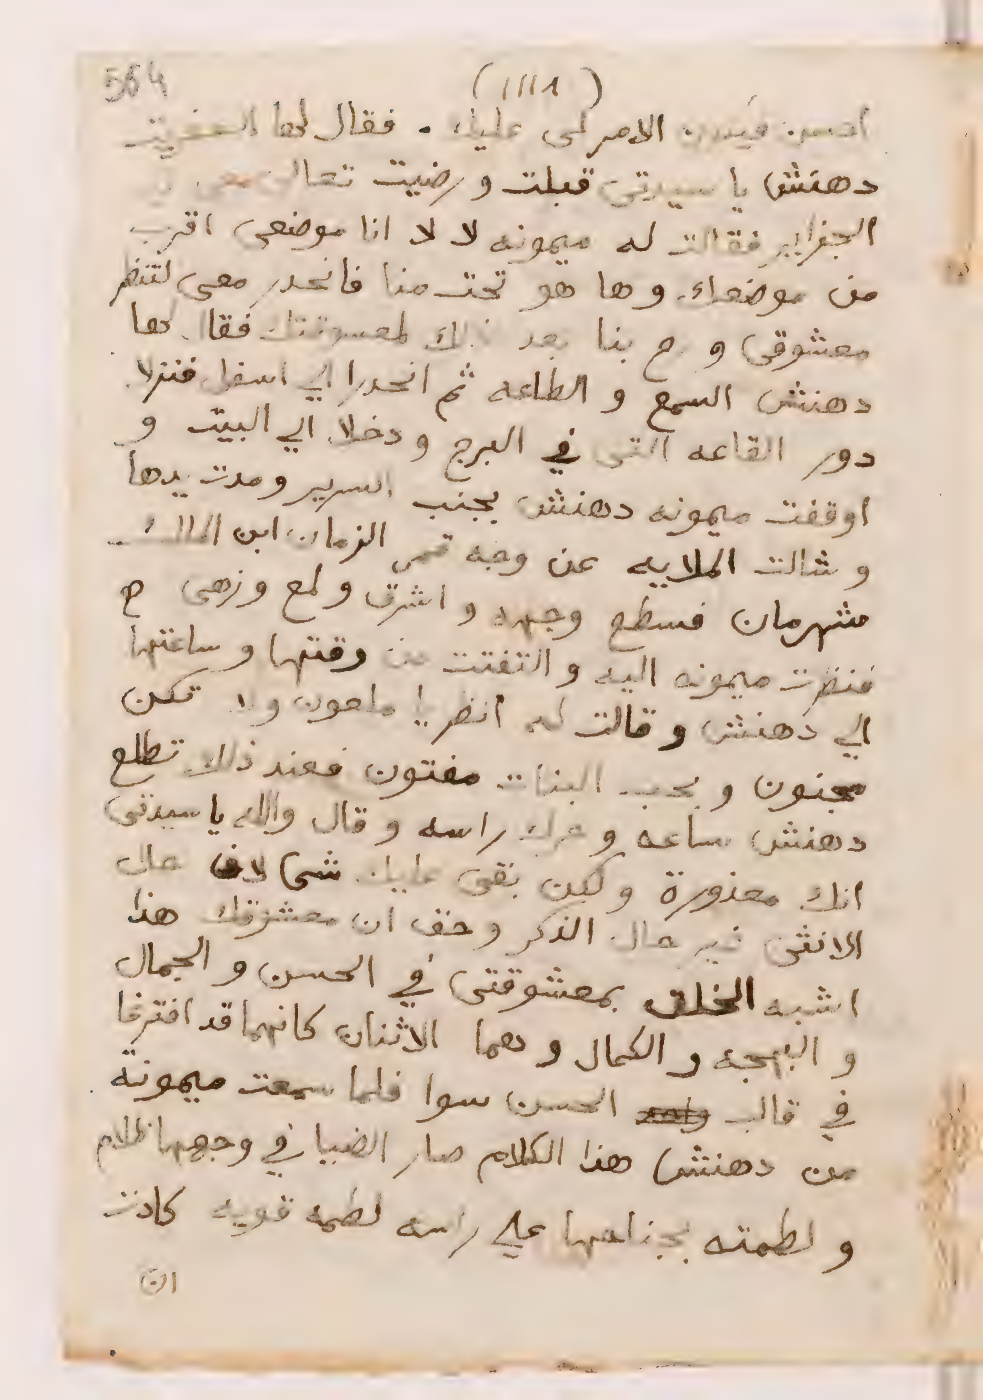 564
(١١١٨)
احسن فيكون الامر لى عليك . فقال لها العفريت
دهنش يا سيدتى قبلت و رضيت تعالى معى
الجزاير فقالت له ميمونه لا لا انا موضعى اقرب
من موضعك وها هو تحت منا فانحدر معى لتنظر
معشوقى و رح بنا بعد ذلك لمعشوقتك فقال لها
دهنش السمع و الطاعه ثم انحدرا الي اسفل فنزلا
دور القاعه التى في البرج و دخلا الي البيت و
اوقفت ميمونه دهنش بجنب السرير و مدت يدها
و شالت الملايه عن وجه قمر الزمان ابن الملك
شهرمان فسطع وجهه و اشرق و لمع و زهى ح
فنظرت ميمونه اليه و التفتت من وقتها و ساعتها
الي دهنش و قالت له انظر يا ملعون ولا تكن
مجنون و بحب البنات مفتون فعند ذلك تطلع
دهنش ساعه و حرك راسه و قال والله يا سيدتى
انك معذورة ولكن بقى عليك شى لان حال
الانثى غير حال الذكر و حق ان معشوقك هذا
اشبه الخلق بمعشوقتى في الحسن و الجمال
و البهجه و الكمال و هما الاثنان كانهما قد افترغا
في قالب الحسن سوا فلما سمعت ميمونة
من دهنش هذا الكلام صار الضيا في وجهها ظلام
و لطمته بجناحها على راسه لطمه قويه كادت
ان